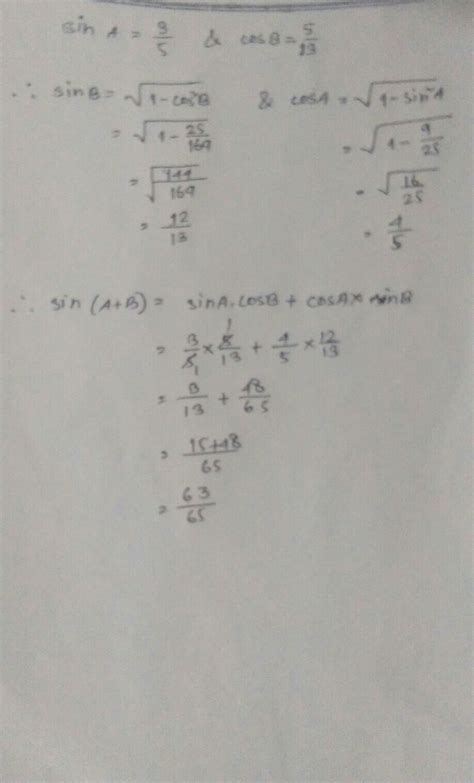 sin A = 3/5 & cosB = 5/13
∴ sinB = √(1-cos²B) & cosA = √(1-sin²A)
= √(1-25/169) = √(1-9/25)
= √(144/169) = √(16/25)
= 12/13 = 4/5
∴ sin (A+B) = sinA.cosB + cosA× sinB
= 3/5 1 × 5/13 1 + 4/5 × 12/13
= 3/13 + 48/65
= 15+48/65
= 63/65